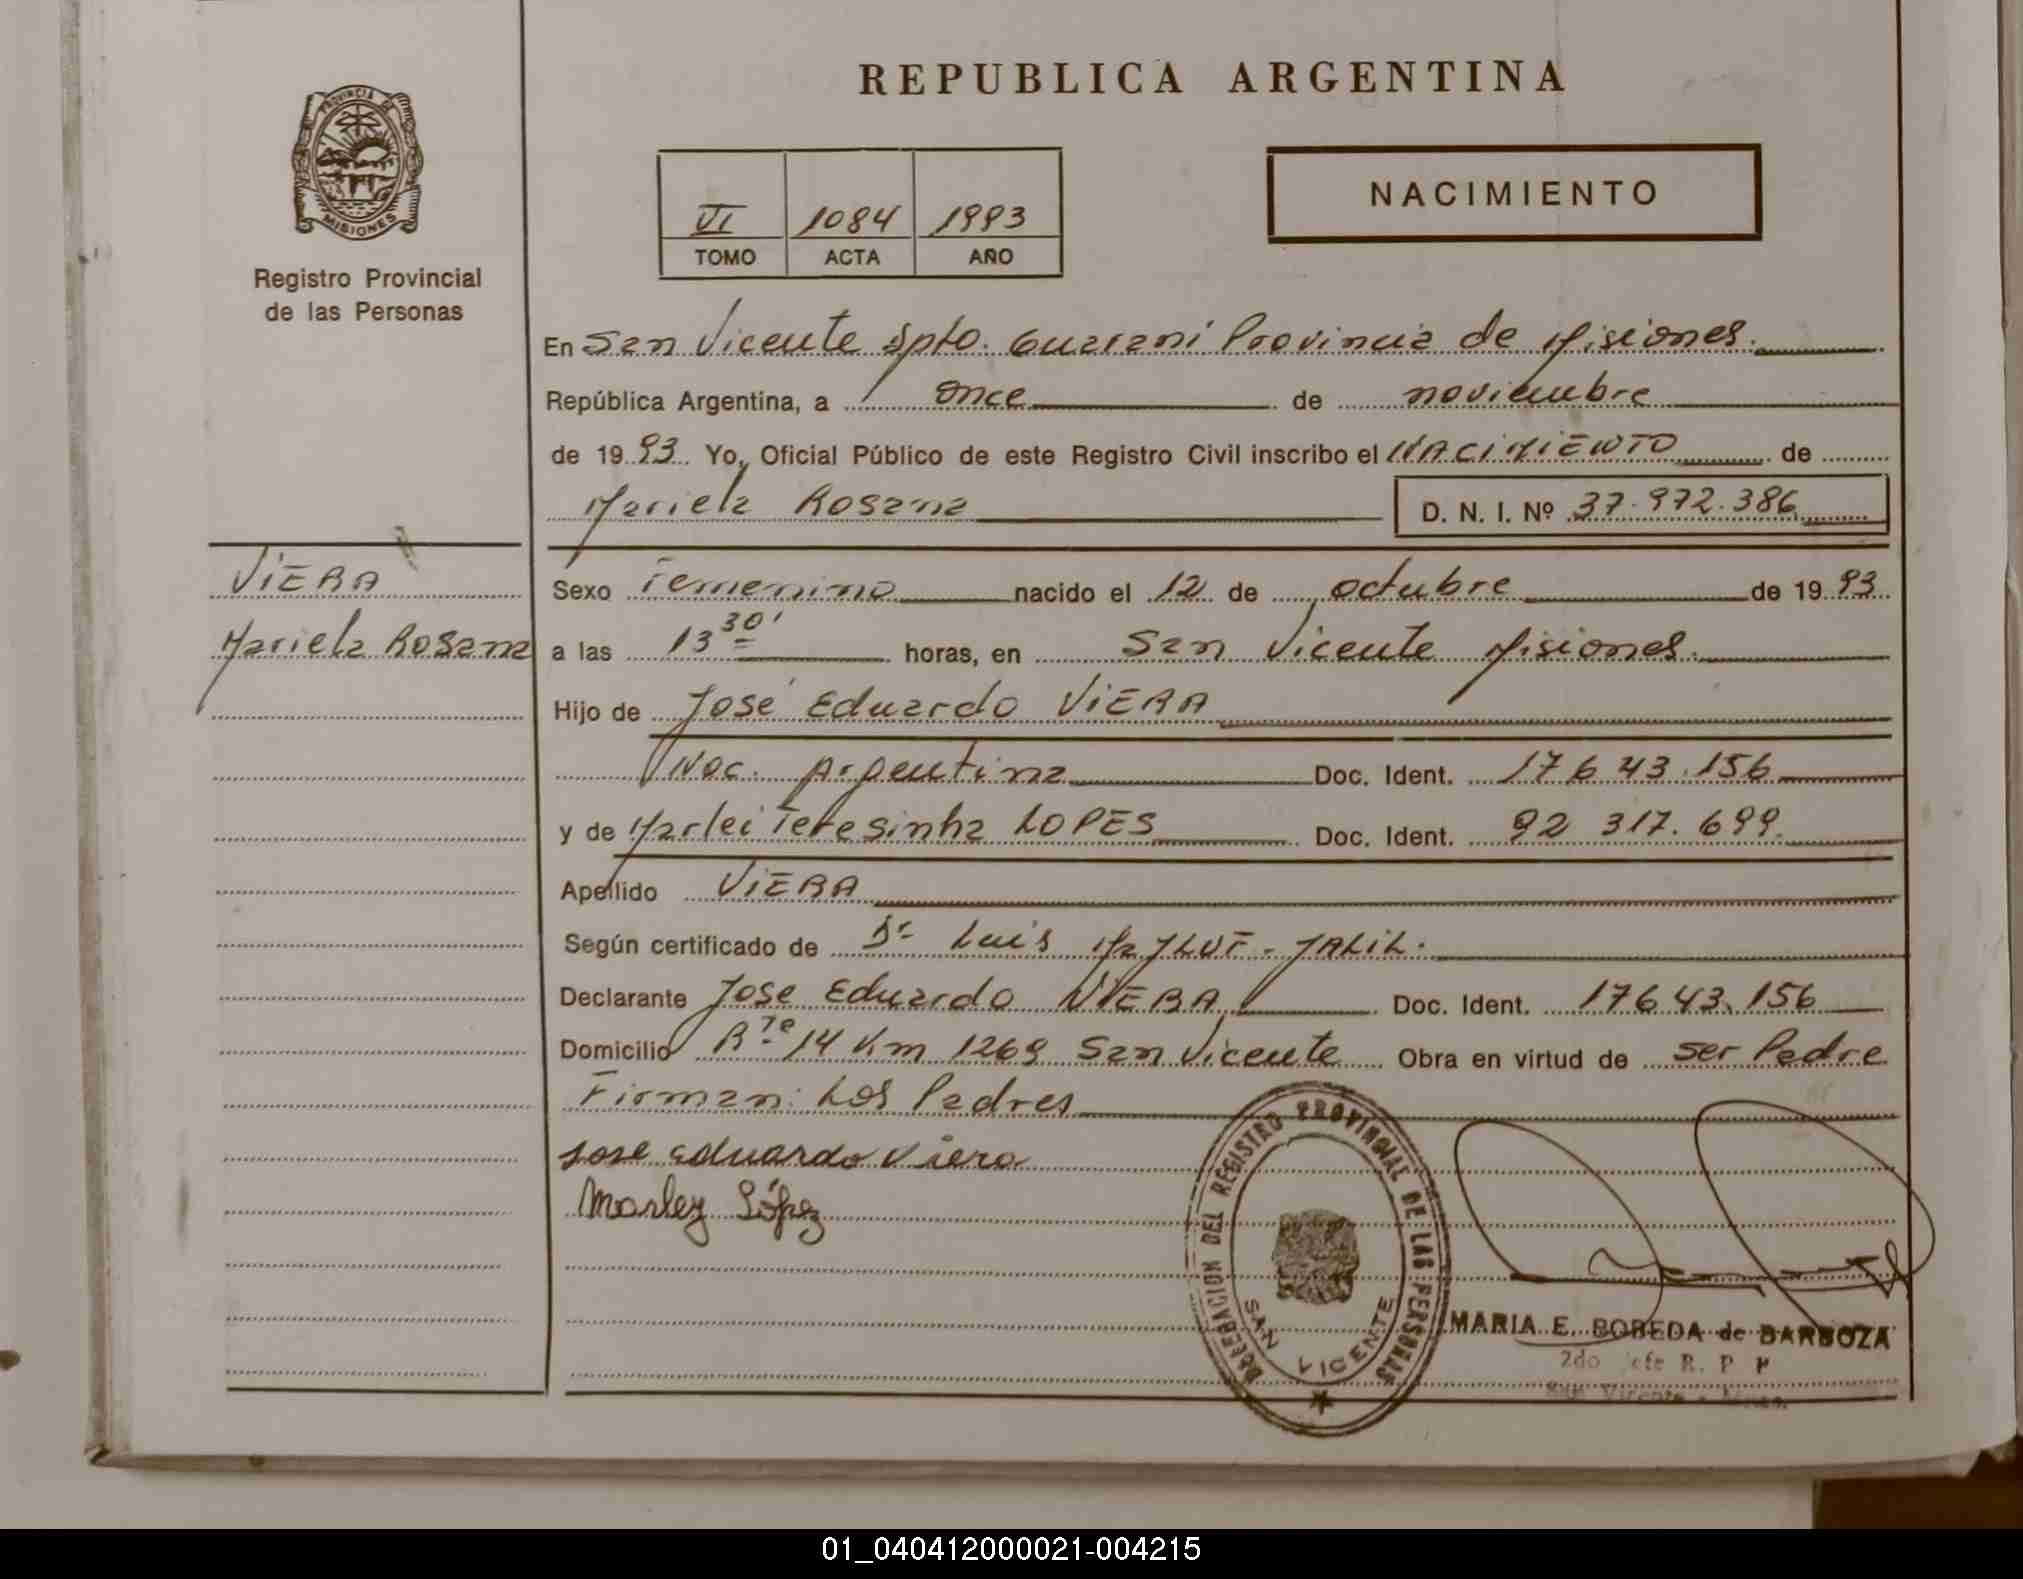 REPUBLICA ARGENTINA
PROVINCIA DE
MISIONES
Registro Provincial
de las Personas
VI 1084 1993
TOMO ACTA AÑO
NACIMIENTO
En San Vicente Dpto. Guaraní Provincia de Misiones.
República Argentina, a once de noviembre
de 1993. Yo, Oficial Público de este Registro Civil inscribo el NACIMIENTO de
Mariela Rosana D. N. I. Nº 37.972.386
VIERA
Mariela Rosana
Sexo Femenino nacido el 12 de octubre de 1993.
a las 13 30' horas, en San Vicente Misiones.
Hijo de José Eduardo VIERA
Nac. Argentina Doc. Ident. 17643.156
y de Marlei Teresinha LOPES Doc. Ident. 92 317.699.
Apellido VIERA
Según certificado de Dr Luis JALIL.
Declarante Jose Eduardo VIERA Doc. Ident. 17643.156
Domicilio R 14 Km 1269 San Vicente Obra en virtud de ser Padre
Firman: Los Padres
Jose Eduardo Viera
Marley López
DELEGACION DEL REGISTRO PROVINCIAL DE LAS PERSONAS
SAN VICENTE
MARIA E. BOBEDA de BARBOZA
2do Jefe R. P. P
San Vicente - Mnes.
01_040412000021-004215